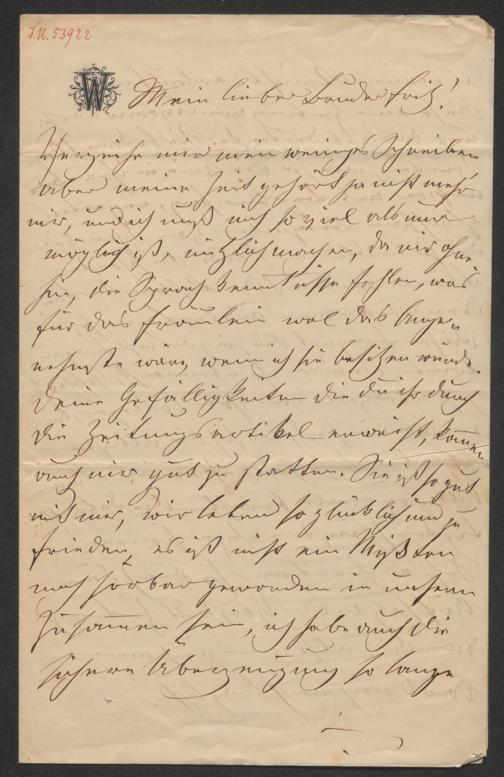 J.N. 53922
W
Mein lieber Bruder Fritz!
Verzeihe mir mein weniges Schreiben
aber meine Zeit gehört ja nicht mehr
mir, und ich muß mich so viel als nur
möglich ist, nützlich machen, da mir ohne
hin, die Sprach Kenntnisse fehlen, was
für das Fräulein wol das Ange-
nehmste wäre, wenn ich sie besitzen würde.
Deine Gefälligkeiten die du ihr durch
die Zeitungsartikel erweist, kommen
auch mir gut zu statten. Sie ist so gut
mit mir, wir leben so glücklich und zu
frieden, es ist nicht ein Mißton
noch hörbar geworden in unserm
Zusammen sein, ich habe auch die
sichere Überzeugung so lange